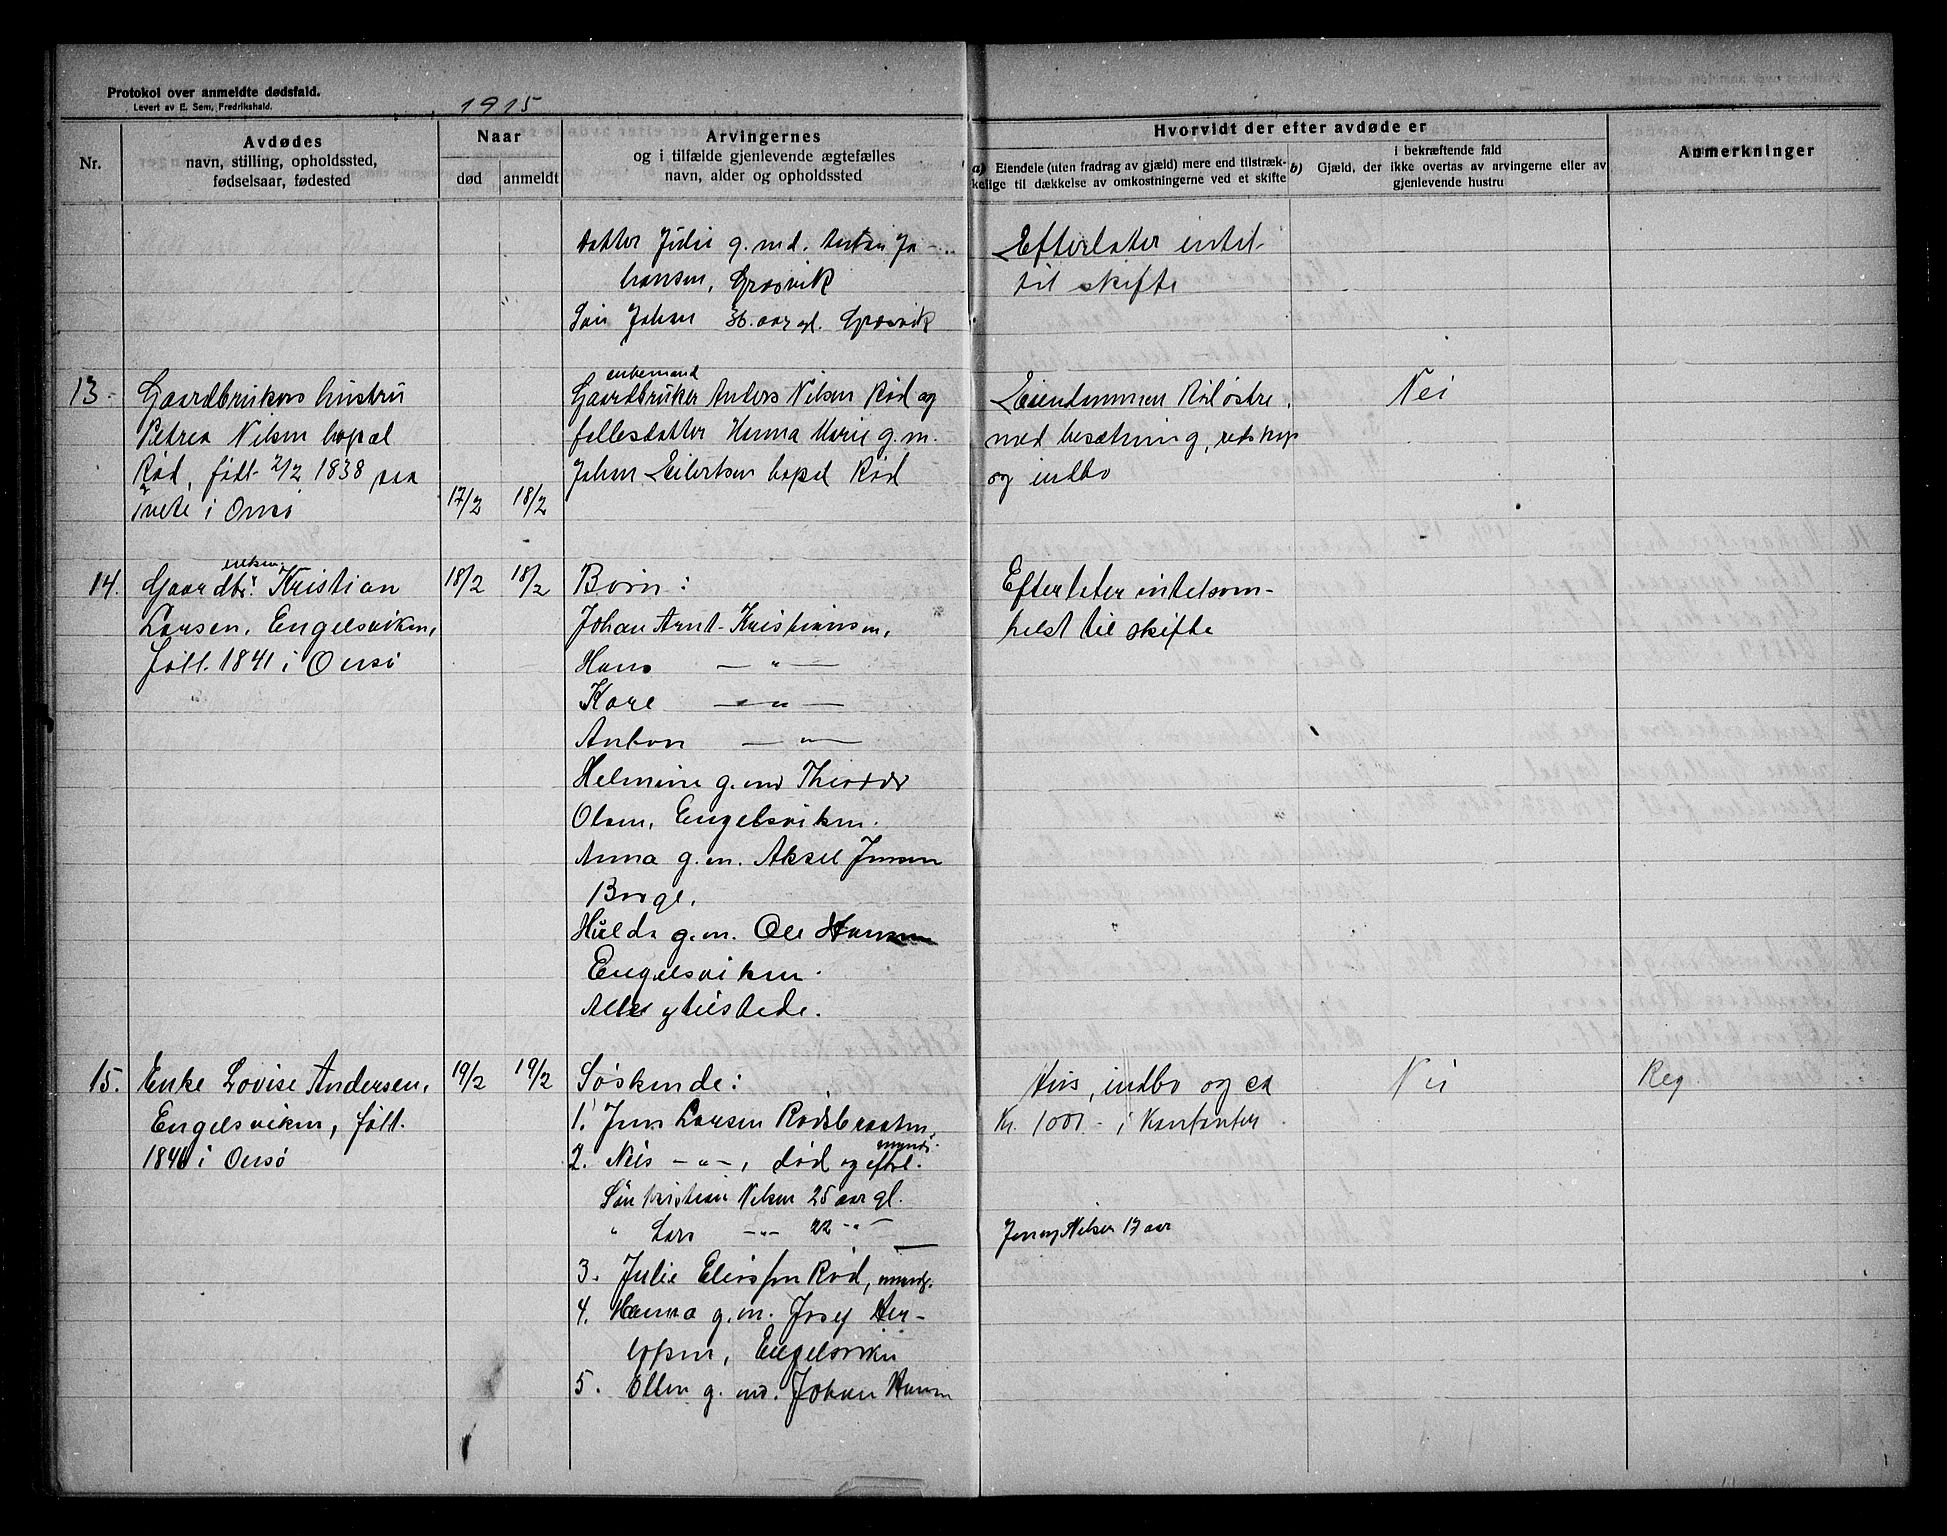 Protokol over anmeldte dødsfald.
Levert av E. Sem, Fredrikshald.
1915
Nr.
Avdødes
navn, stilling, opholdssted,
fødselsaar, fødested
Naar
død anmeldt
Arvingernes
og i tilfælde gjenlevende ægtefælles
navn, alder og opholdssted
Hvorvidt der efter avdøde er
a) Eiendele (uten fradrag av gjæld) mere end tilstræk-
kelige til dækkelse av omkostningerne ved et skifte
i bekræftende fald
b) Gjæld, der ikke overtas av arvingerne eller av
gjenlevende hustru
Anmerkninger
Datter Julie g. md. Anton Jo-
hansen, Græsvik
Søn Johan 36 aar gl. Græsvik
Efterlater intet
til skifte
13.
Gaardbrukers hustru
Petrea Nilsen bopæl
Rød, født 2/2 1838 paa
i Onsø
17/2 18/2
enkemand
Gaardbruker Anders Nilsen Rød og
fellesdatter Hanna Marie g. m.
Johan Eilertsen bopæl Rød
Eiendommen Rød østre,
med besætning, redskap
og indbo
Nei
14.
enkem.
Gaardbr. Kristian
Larsen, Engelsviken,
født 1841 i Onsø
18/2 18/2
Børn:
Johan Arnt Kristiansen,
Hans — " —
Kare — " —
Anton — " —
Helmine g. m. Theodor
Olsen, Engelsviken.
Anna g. m. Aksel Jensen
Borge.
Hulda g. m. Ole Hansen
Engelsviken.
Alle myndige tilstede.
Efterlater intetsom-
helst til skifte
15.
Enke Lovise Andersen,
Engelsviken, født
1841 i Onsø
19/2 19/2
Søskende:
1. Jens Larsen Rødsbraaten,
2. Nils — " —, død og efterl. myndi.
Søn Kristian Nilsen 25 aar gl.
" Lars — " — 22 — " —
3. Julie Eliassen Rød, myndg.
4. Hanna g. m. Josef
Engelsviken
5. Ellen g. m. Johan Hansen
Hus, indbo og ca
Kr. 1000.- i Kontanter.
Jenny Nilsen 17 aar
Nei
Reg.